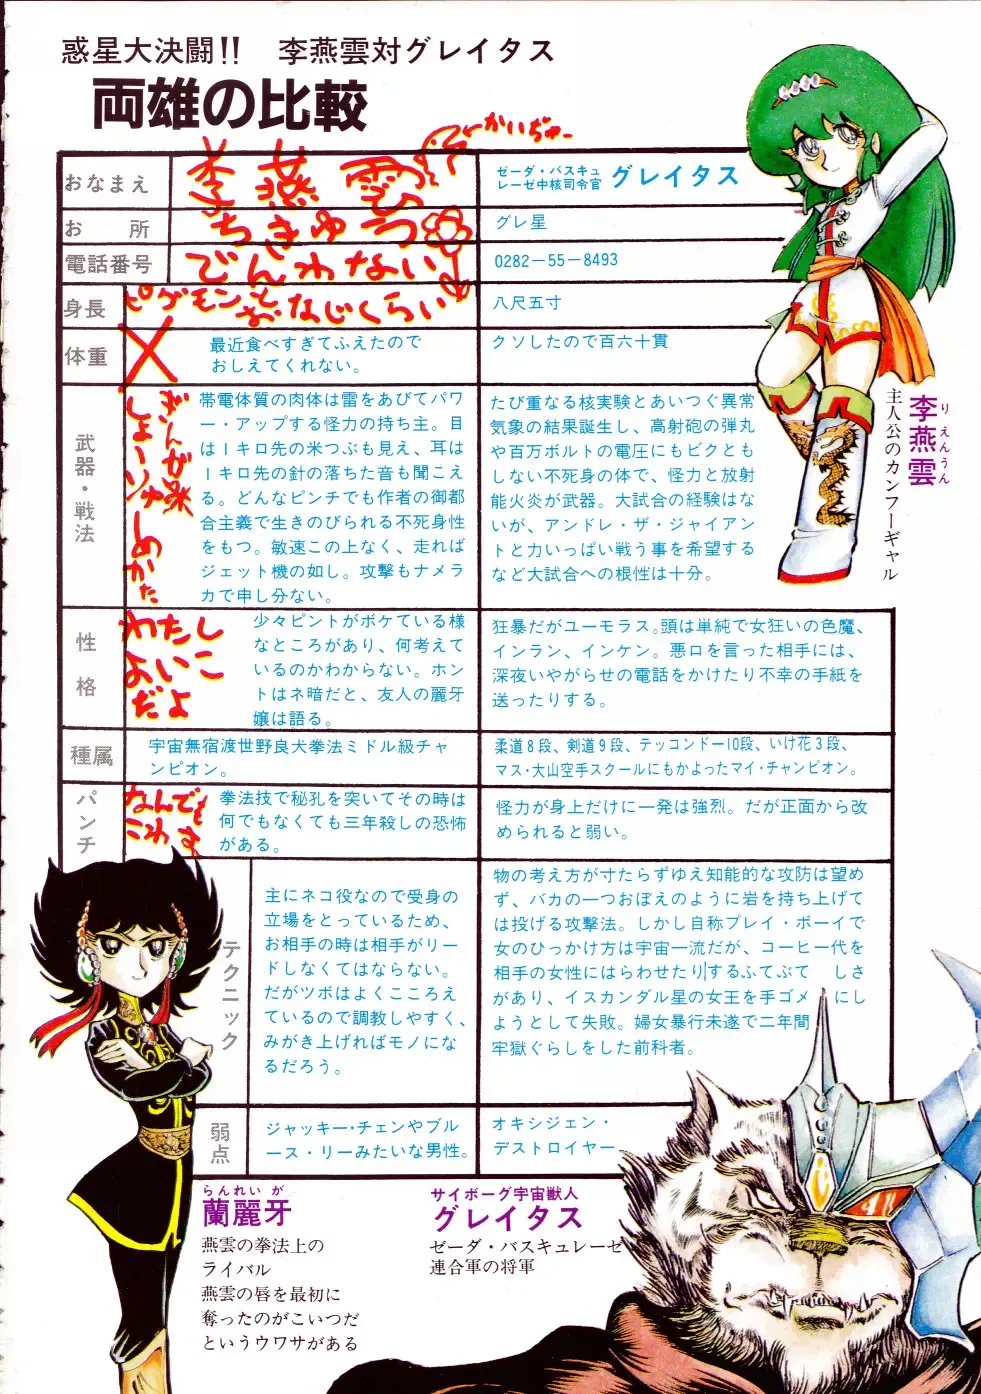 惑星大決闘!!　李燕雲対グレイタス
両雄の比較
おなまえ
李燕雲
←かいぢゅー
ゼーダ・バスキュ
レーゼ中核司令官 グレイタス
お　所
ちきゅう
グレ星
電話番号
でんわない
0282−55−8493
身長
ピグモンと
おなじくらい
八尺五寸
体重
最近食べすぎてふえたので
おしえてくれない。
クソしたので百六十貫
武器・戦法
ぎんが系
しょーりゅー
しめかた
帯電体質の肉体は雷をあびてパワ
ー・アップする怪力の持ち主。目
は1キロ先の米つぶも見え、耳は
1キロ先の針の落ちた音も聞こえ
る。どんなピンチでも作者の御都
合主義で生きのびられる不死身性
をもつ。敏速この上なく、走れば
ジェット機の如し。攻撃もナメラ
カで申し分ない。
たび重なる核実験とあいつぐ異常
気象の結果誕生し、高射砲の弾丸
や百万ボルトの電圧にもビクとも
しない不死身の体で、怪力と放射
能火炎が武器。大試合の経験はな
いが、アンドレ・ザ・ジャイアン
トと力いっぱい戦う事を希望する
など大試合への根性は十分。
性格
わたし
よいこ
だよ
少々ピントがボケている様
なところがあり、何考えて
いるのかわからない。ホン
トはネ暗だと、友人の麗牙
嬢は語る。
狂暴だがユーモラス。頭は単純で女狂いの色魔、
インラン、インケン。悪口を言った相手には、
深夜いやがらせの電話をかけたり不幸の手紙を
送ったりする。
種属
宇宙無宿渡世野良犬拳法ミドル級チャ
ンピオン。
柔道8段、剣道9段、テッコンドー10段、いけ花3段、
マス・大山空手スクールにもかよったマイ・チャンピオン。
パンチ
なんでも
こわ
拳法技で秘孔を突いてその時は
何でもなくても三年殺しの恐怖
がある。
怪力が身上だけに一発は強烈。だが正面から攻
められると弱い。
テクニック
主にネコ役なので受身の
立場をとっているため、
お相手の時は相手がリー
ドしなくてはならない。
だがツボはよくこころえ
ているので調教しやすく、
みがき上げればモノにな
るだろう。
物の考え方が寸たらずゆえ知能的な攻防は望め
ず、バカの一つおぼえのように岩を持ち上げて
は投げる攻撃法。しかし自称プレイ・ボーイで
女のひっかけ方は宇宙一流だが、コーヒー代を
相手の女性にはらわせたりするふてぶて しさ
があり、イスカンダル星の女王を手ゴメ にし
ようとして失敗。婦女暴行未遂で二年間
牢獄ぐらしをした前科者。
弱点
ジャッキー・チェンやブル
ース・リーみたいな男性。
オキシジェン・
デストロイヤー
李燕雲
りえんうん
主人公のカンフーギャル
らんれいが
蘭麗牙
燕雲の拳法上の
ライバル
燕雲の唇を最初に
奪ったのがこいつだ
というウワサがある
サイボーグ宇宙獣人
グレイタス
ゼーダ・バスキュレーゼ
連合軍の将軍